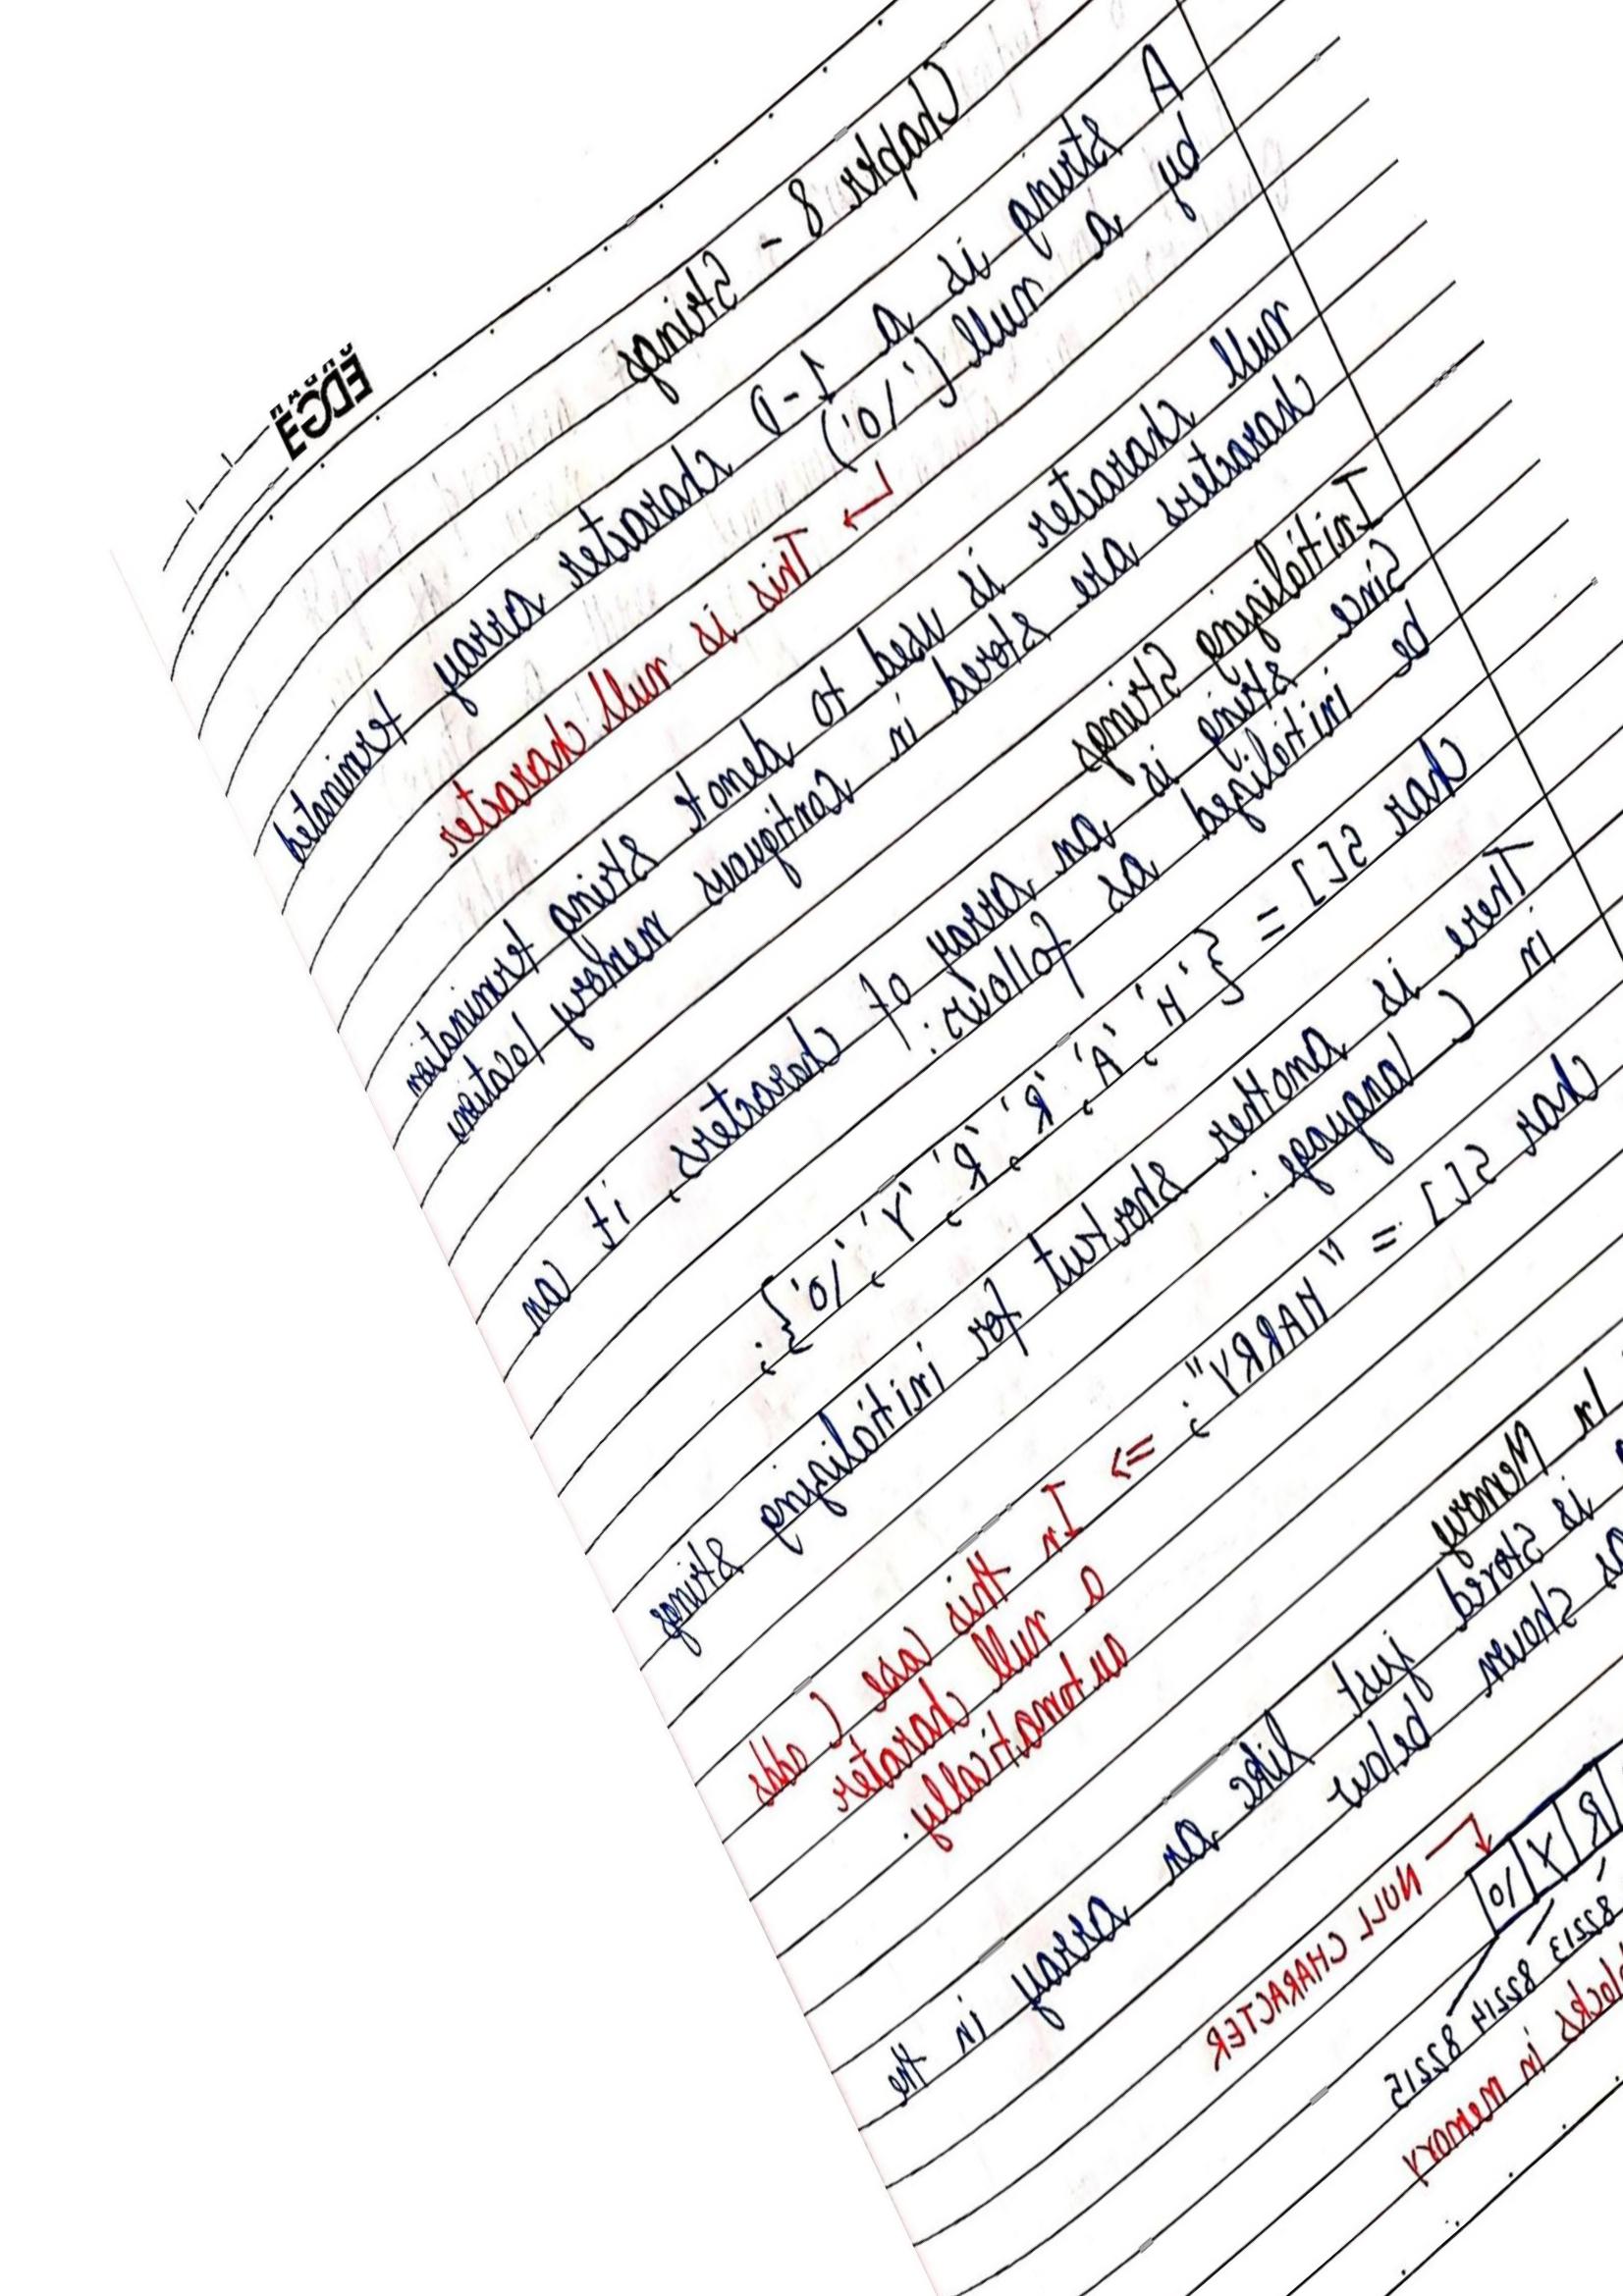 EDGE
Chapter 8 - Strings
A string is a 1-D character array terminated
by a null ('/0')
This is null character
null character is used to denote string termination
characters are stored in contiguous memory locations
Initializing Strings
Since string is an array of characters, it can
be initialized as follows:
char S[] = {'H', 'A', 'R', 'R', 'Y', '/0'};
There is another shortcut for initializing strings
in C language:
char S[] = "HARRY"; => In this case C adds
a null character
automatically.
In Memory
is stored just like an array in the
as shown below
NULL CHARACTER
R Y /0
82213 82214 82215
blocks in memory